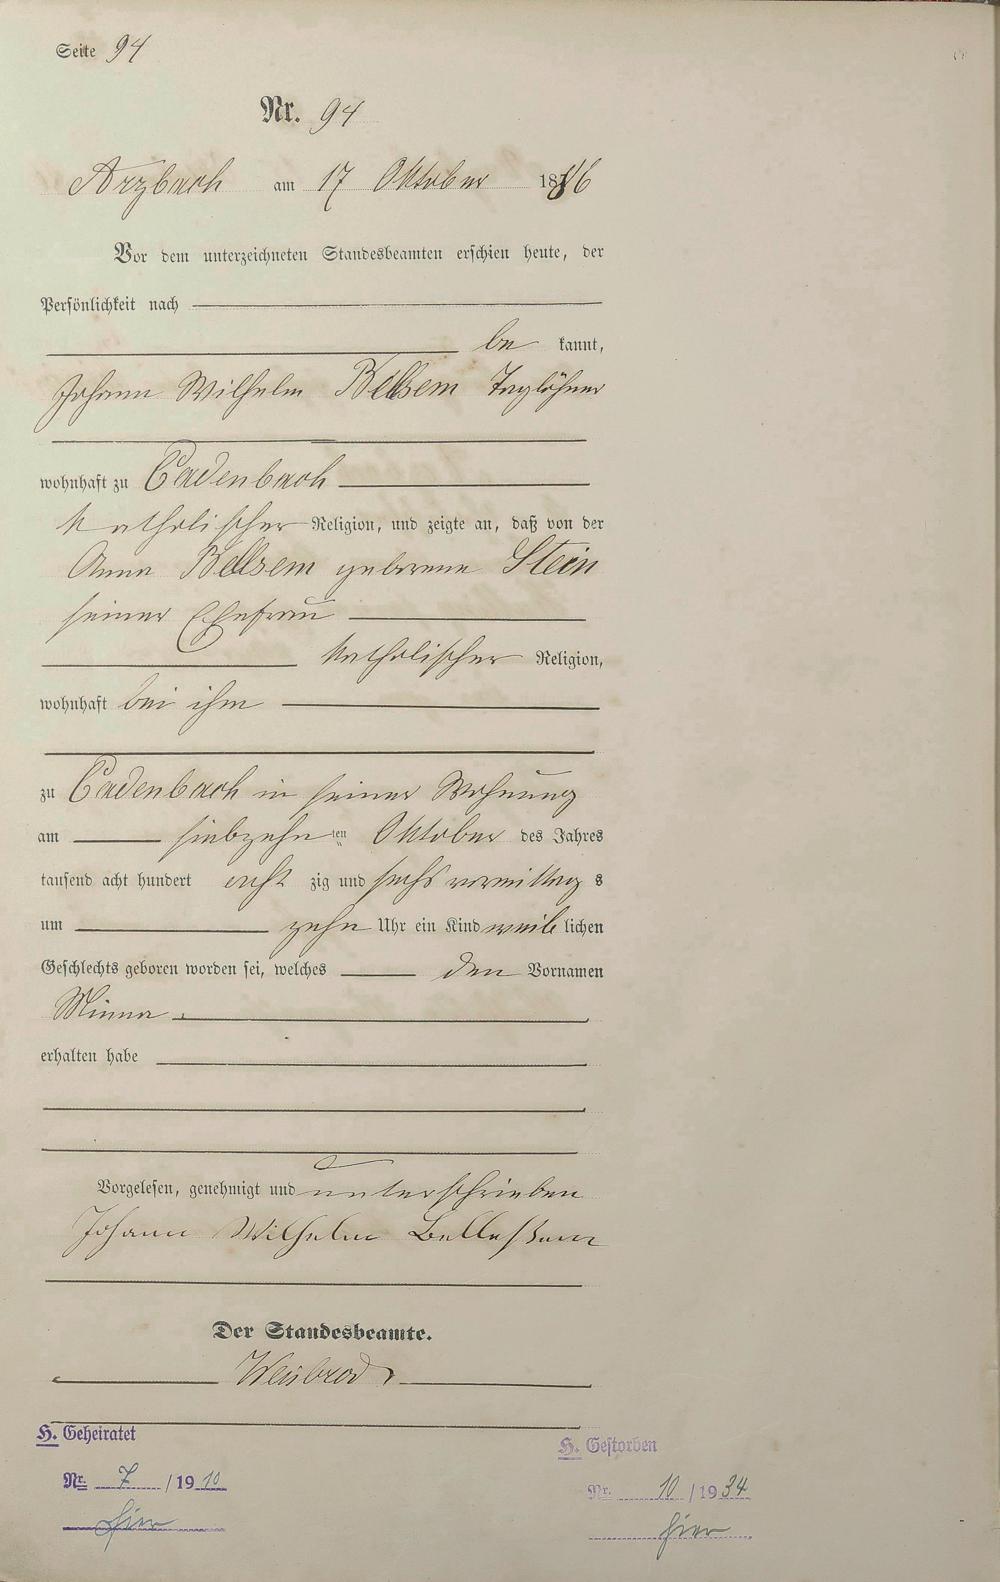 Seite 94
Nr. 94
Arzbach am 17 Oktober 1886
Vor dem unterzeichneten Standesbeamten erschien heute, der
Persönlichkeit nach
be kannt,
Johann Wilhelm Taglöhner
wohnhaft zu Cadenbach
katholischer Religion, und zeigte an, daß von der
Anna geborene Stein
seiner Ehefrau
katholischer Religion,
wohnhaft bei ihm
zu Cadenbach in seiner Wohnung
am siebzehn ten Oktober des Jahres
tausend acht hundert acht zig und sechs vormittag s
um zehn Uhr ein Kind weib lichen
Geschlechts geboren worden sei, welches den Vornamen
Minna
erhalten habe
Vorgelesen, genehmigt und unterschrieben
Johann Wilhelm
Der Standesbeamte.
Weisbrod
H. Geheiratet
H. Gestorben
Nr. 7 /1910
Nr. 10 /1934
hier
hier